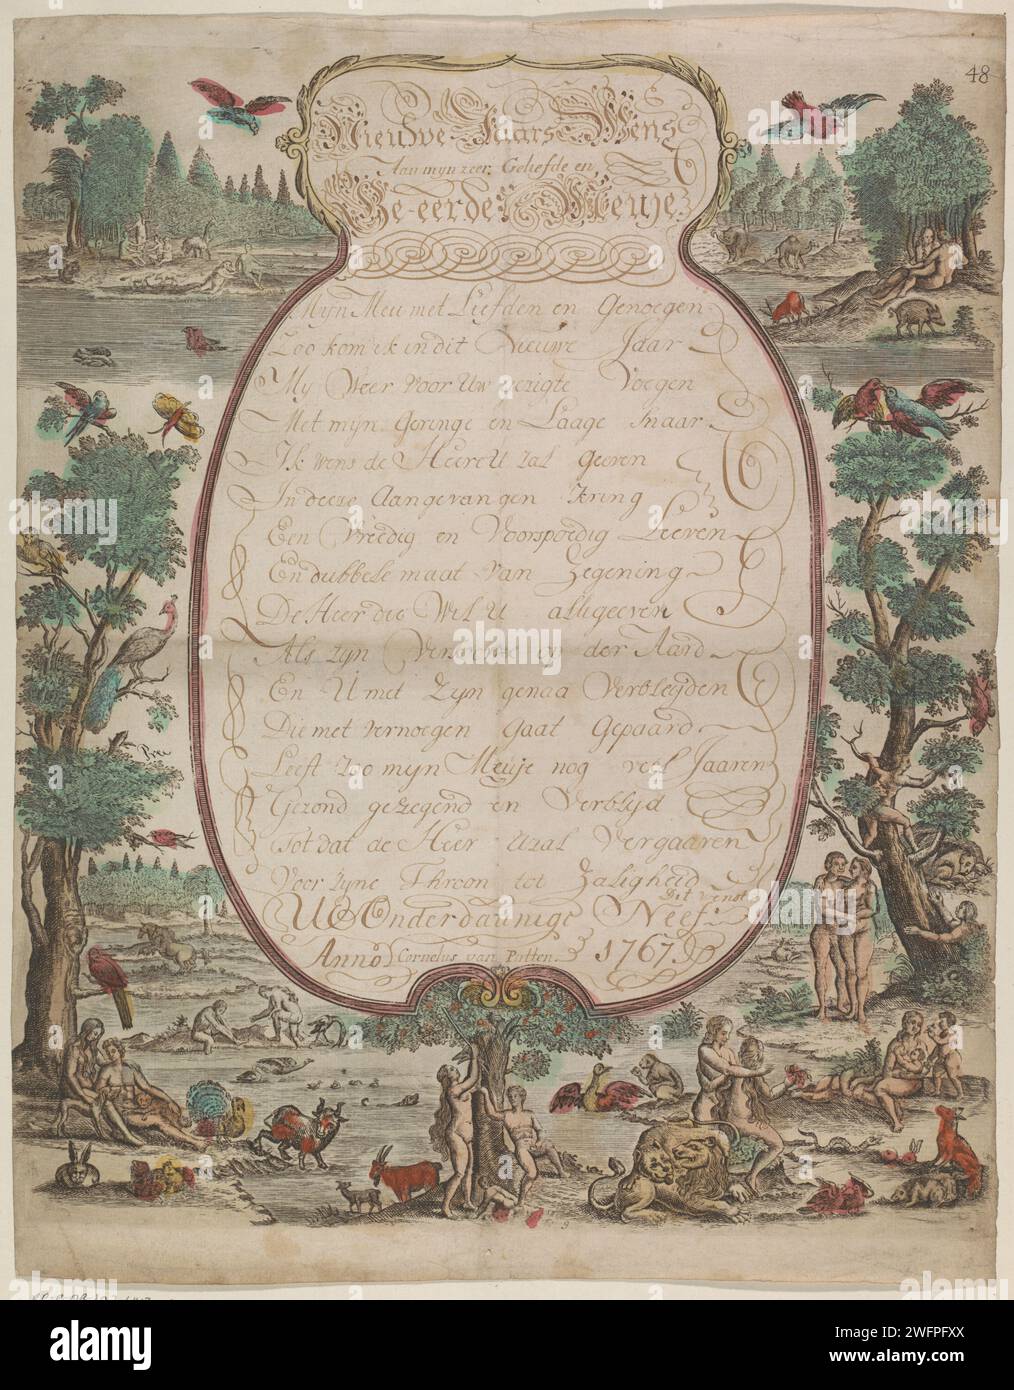 48
Nieuwe Jaars Wens
Aan mijn zeer Geliefde en
Ge-eerde Meuje
Mijn Meu met Liefden en Genoegen
Zoo kom ik in dit Nieuwe Jaar
My Weer voor Uw gezigte Voegen
Met mijn Geringe en Laage maar
Ik wens de Heere U zal geeven
In deeze Aangevangen Kring
Een Vreedig en Voorspoedig Leeven
En dubbele maat van Zegening
De Heer die Wil U alles geeven
Als zyn op der Aard
En U met zyn genaa Verbleyden
Die met vernoegen Gaat Gepaard
Leeft zoo mijn Meuje nog veel Jaaren
Gezond gezegend en Verblyd
Tot dat de Heer U zal Vergaaren
Voor zyne Throon tot Zaligheid
Dit Wenst
U E Onderdaunige Neef
Anno Cornelus van Putten 1767
alamy
Image ID: 2WFPFXX
www.alamy.com